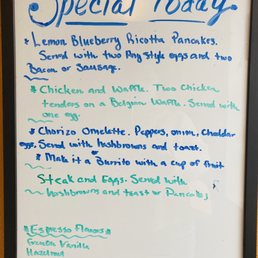 Special Today
* Lemon Blueberry Ricotta Pancakes.
Served with two Any style eggs and two
Bacon or Sausage.
* Chicken and Waffle. Two Chicken
tenders on a Belgian Waffle. Served with
one egg.
* Chorizo Omelette. Peppers, onion, Chaddar
Served with hashbrowns and toast.
* Make it a Burrito with a cup of fruit
Steak and Eggs. Served with
hashbrowns and toast or Pancakes
* Espresso Flavors *
French Vanilla
Hazelnut